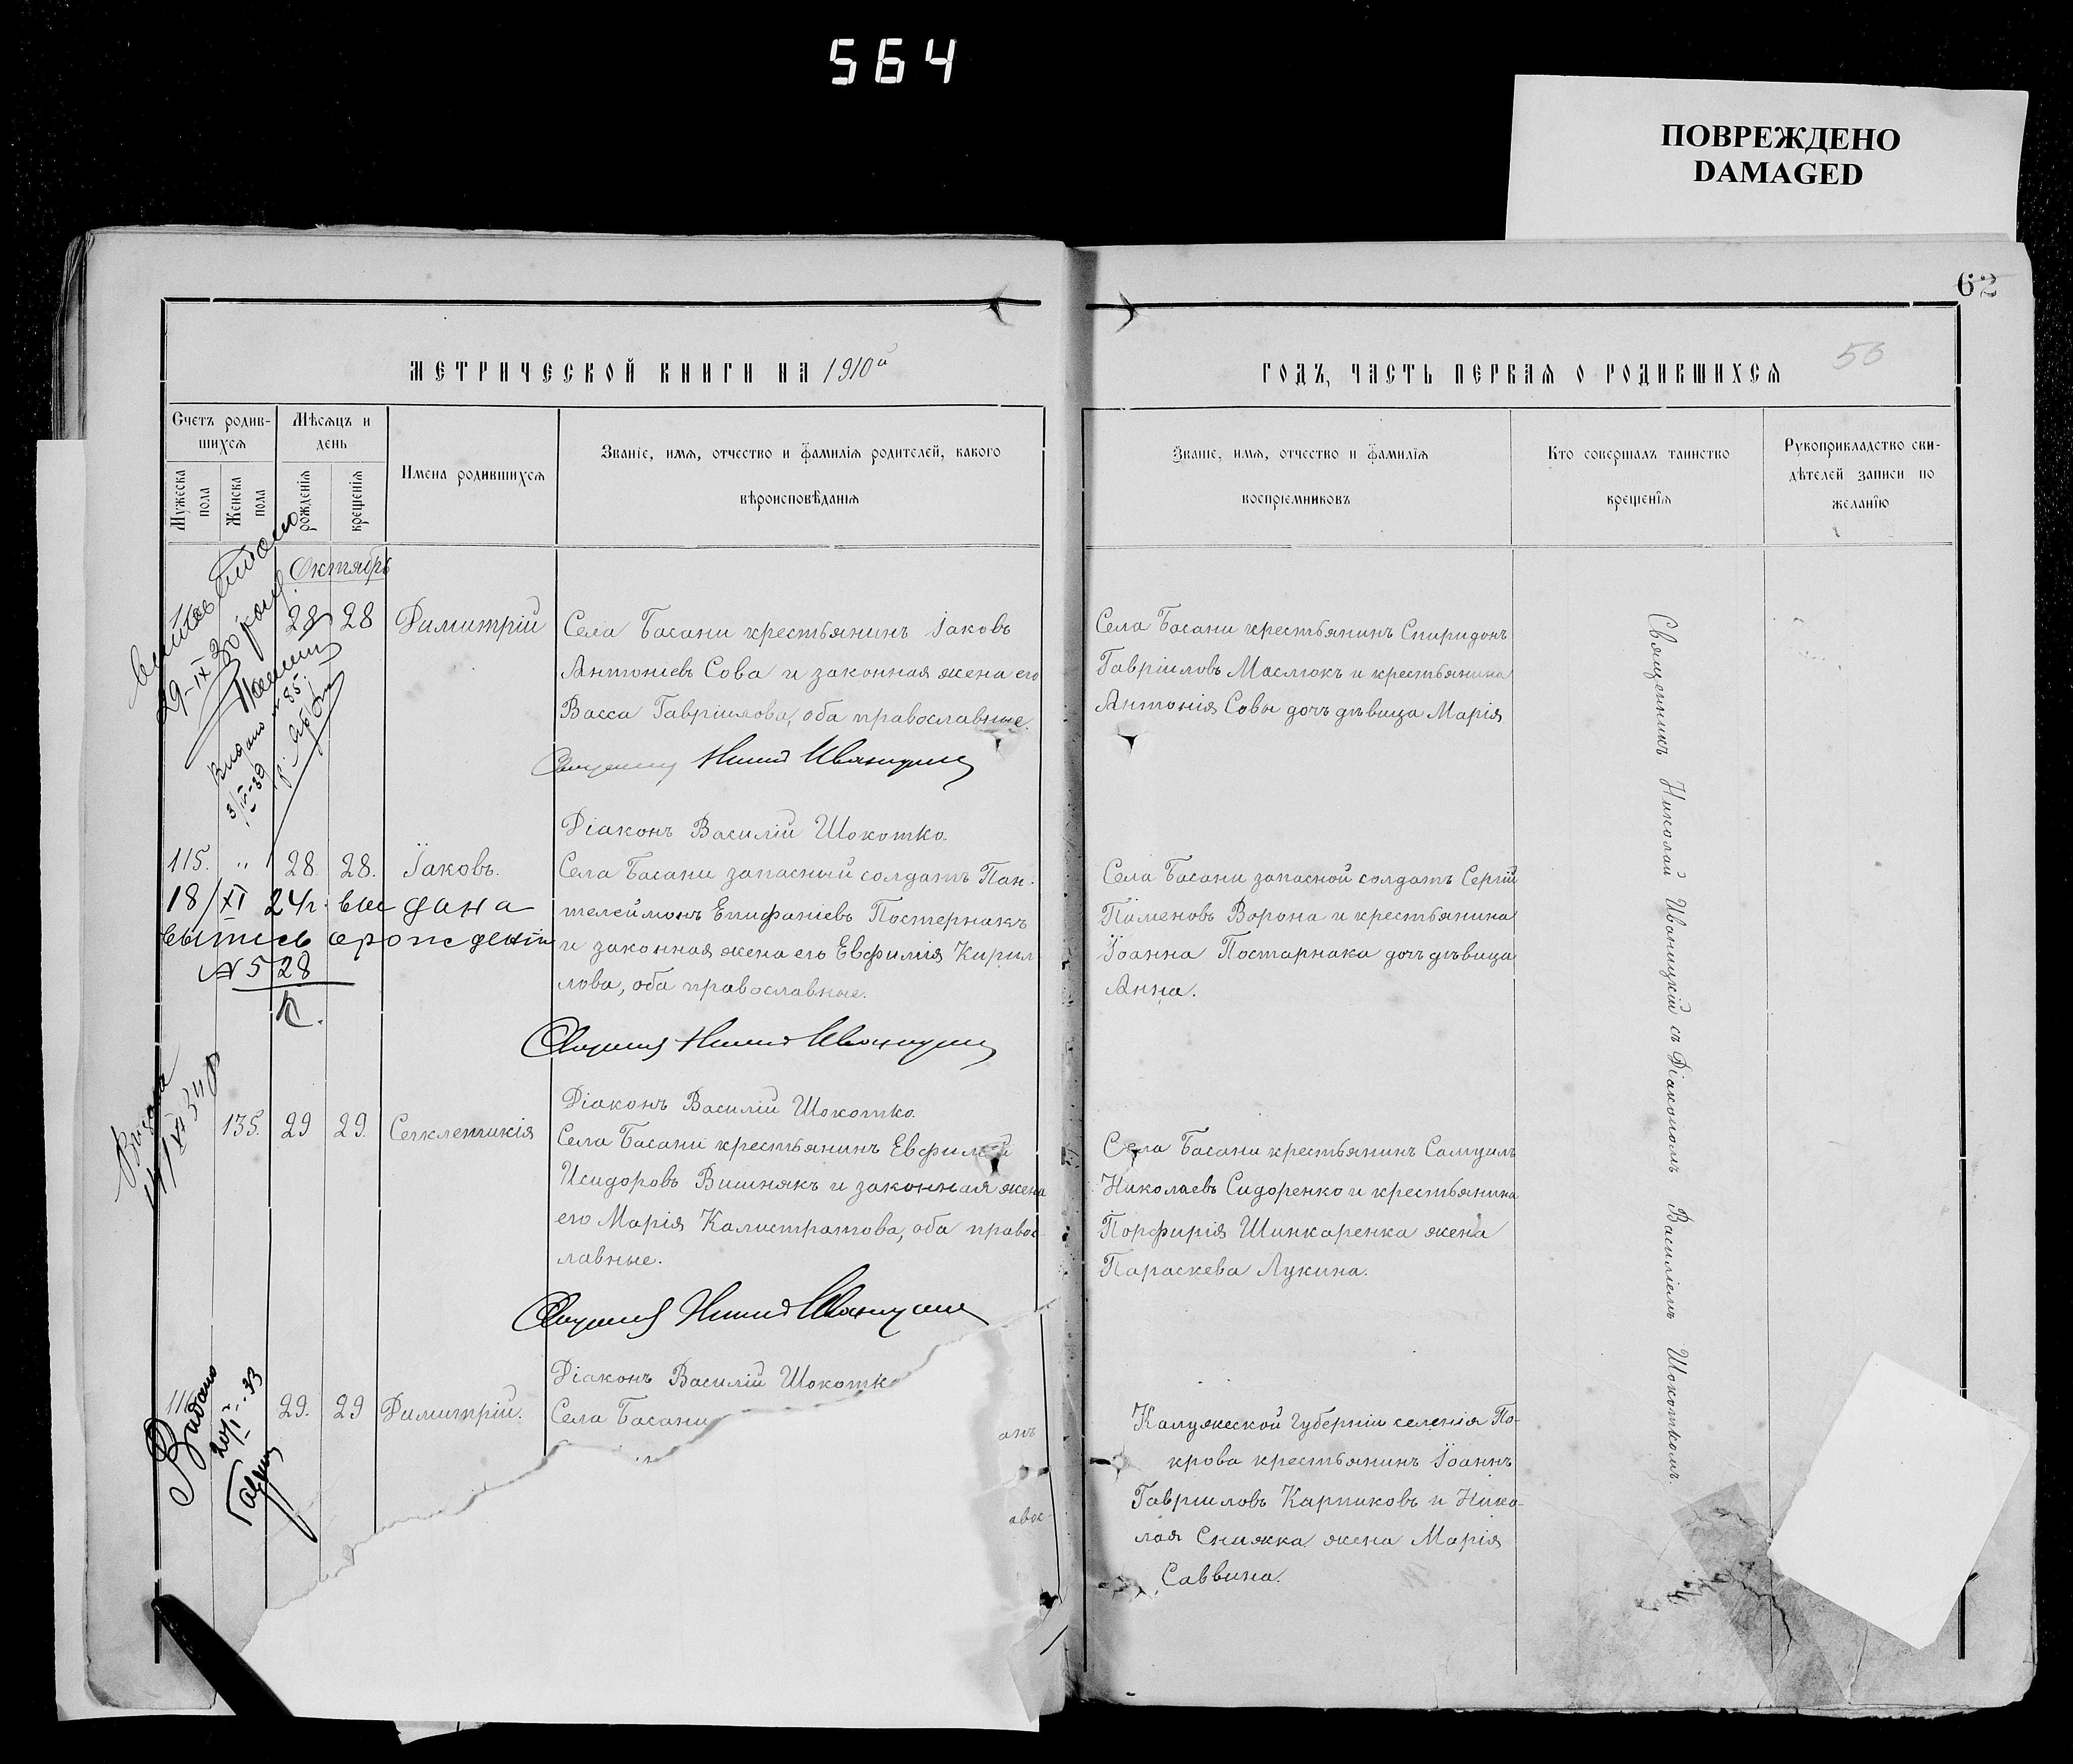 564
ПОВРЕЖДЕНО
DAMAGED
62
МЕТРИЧЕСКОЙ КНИГИ НА 1910й
Счетъ родив-
шихся
Мѣсяцъ и
день
Мужеска
пола
Женска
пола
рожденія
крещенія
Имена родившихся
Званіе, имя, отчество и фамилія родителей, какого
вѣроисповѣданія
Октябрь
28 28 Димитрій
Села Басани крестьянинъ Іаковъ
Антоніевъ Сова и законная жена его
Васса Гавріилова, оба православные.
Діаконъ Василій Шокотко.
115. " 28. 28. Іаковъ.
Села Басани запасный солдатъ Пан-
телеймонъ Епифаніевъ Постернакъ
и законная жена его Евфимія Кирил
лова, оба православные.
18/XI 24г. выдана
выпись о рождении
№ 528
Діаконъ Василій Шокотко.
135. 29 29. Сегклетикія
Села Басани крестьянинъ Евфимій
Исидоровъ Вишнякъ и законная жена
его Марія Калистратова, оба правос
лавные.
Діаконъ Василій Шокотк
116 29. 29 Димитрій.
Села Басани
анъ
авос-
29-IX 30
Выдано
3/IV-39
Выдана
Выдано
20/I-33
ГОДЪ, ЧАСТЬ ПЕРВАЯ О РОДИВШИХСЯ
Званіе, имя, отчество и фамилія
воспріемниковъ
Кто совершалъ таинство
крещенія
Рукоприкладство сви-
дѣтелей записи по
желанію
Села Басани крестьянинъ Спиридонъ
Гавріиловъ Маслюкъ и крестьянина
Антонія Совы дочь дѣвица Марія
Села Басани запасной солдатъ Сергій
Пименовъ Ворона и крестьянина
Іоанна Постарнака дочь дѣвица
Анна.
Села Басани крестьянинъ Самуилъ
Николаевъ Сидоренко и крестьянина
Порфирія Шинкаренка жена
Параскева Лукина.
Калужской губерніи селенія По-
крова крестьянинъ Іоаннъ
Гавриловъ Карпиковъ и Нико-
лая Снижка жена Марія
Саввина.
Священникъ Николай Иваницкій съ Діакономъ Василіемъ Шокоткомъ.